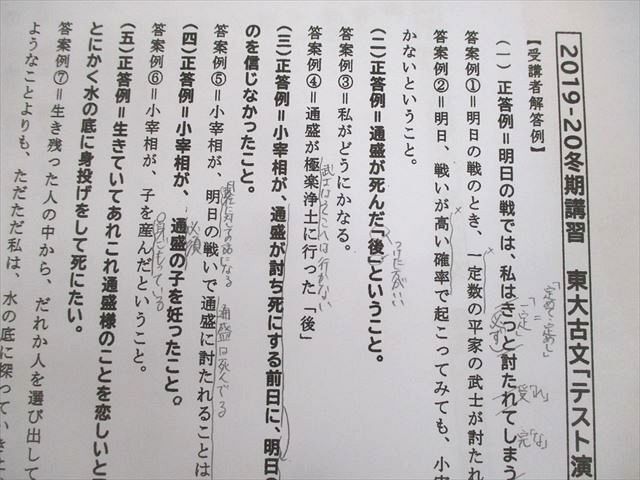 2019-20冬期講習 東大古文「テスト演
【受講者解答例】
(一) 正答例＝明日の戦では、私はきっと討たれてしまう
答案例①＝明日の戦のとき、一定数の平家の武士が討たれ
答案例②＝明日、戦いが高い確率で起こってみても、小宰
かないということ。
(二) 正答例＝通盛が死んだ「後」ということ。
つけた方がいい
答案例③＝私がどうにかなる。
答案例④＝通盛が極楽浄土に行った「後」
武士はごくらくへは行かない
(三) 正答例＝小宰相が、通盛が討ち死にする前日に、明日の
のを信じなかったこと。
答案例⑤＝小宰相が、明日の戦いで通盛に討たれることは
通盛は死んでる
(四) 正答例＝小宰相が、通盛の子を妊ったこと。
必須
答案例⑥＝小宰相が、子を産んだということ。
(五) 正答例＝生きていてあれこれ通盛様のことを恋しいと
とにかく水の底に身投げをして死にたい。
答案例⑦＝生き残った人の中から、だれか人を選び出して
ようなことよりも、ただただ私は、水の底に探っていきた